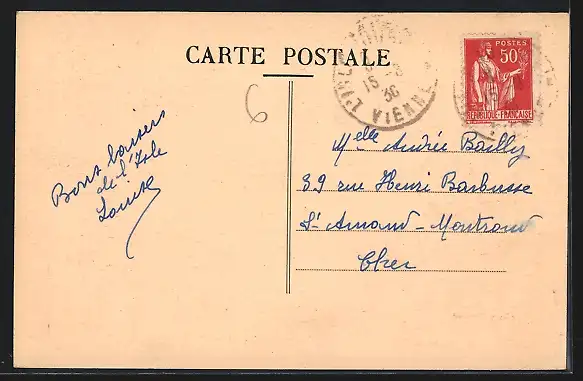 CARTE POSTALE
POSTES
50c
RÉPUBLIQUE-FRANÇAISE
15 -3
36
VIENNE
6
Bons baisers
de l'Isle
Louise
Melle Andrée Bailly
39 rue Henri Barbusse
St Amand - Montrond
Cher